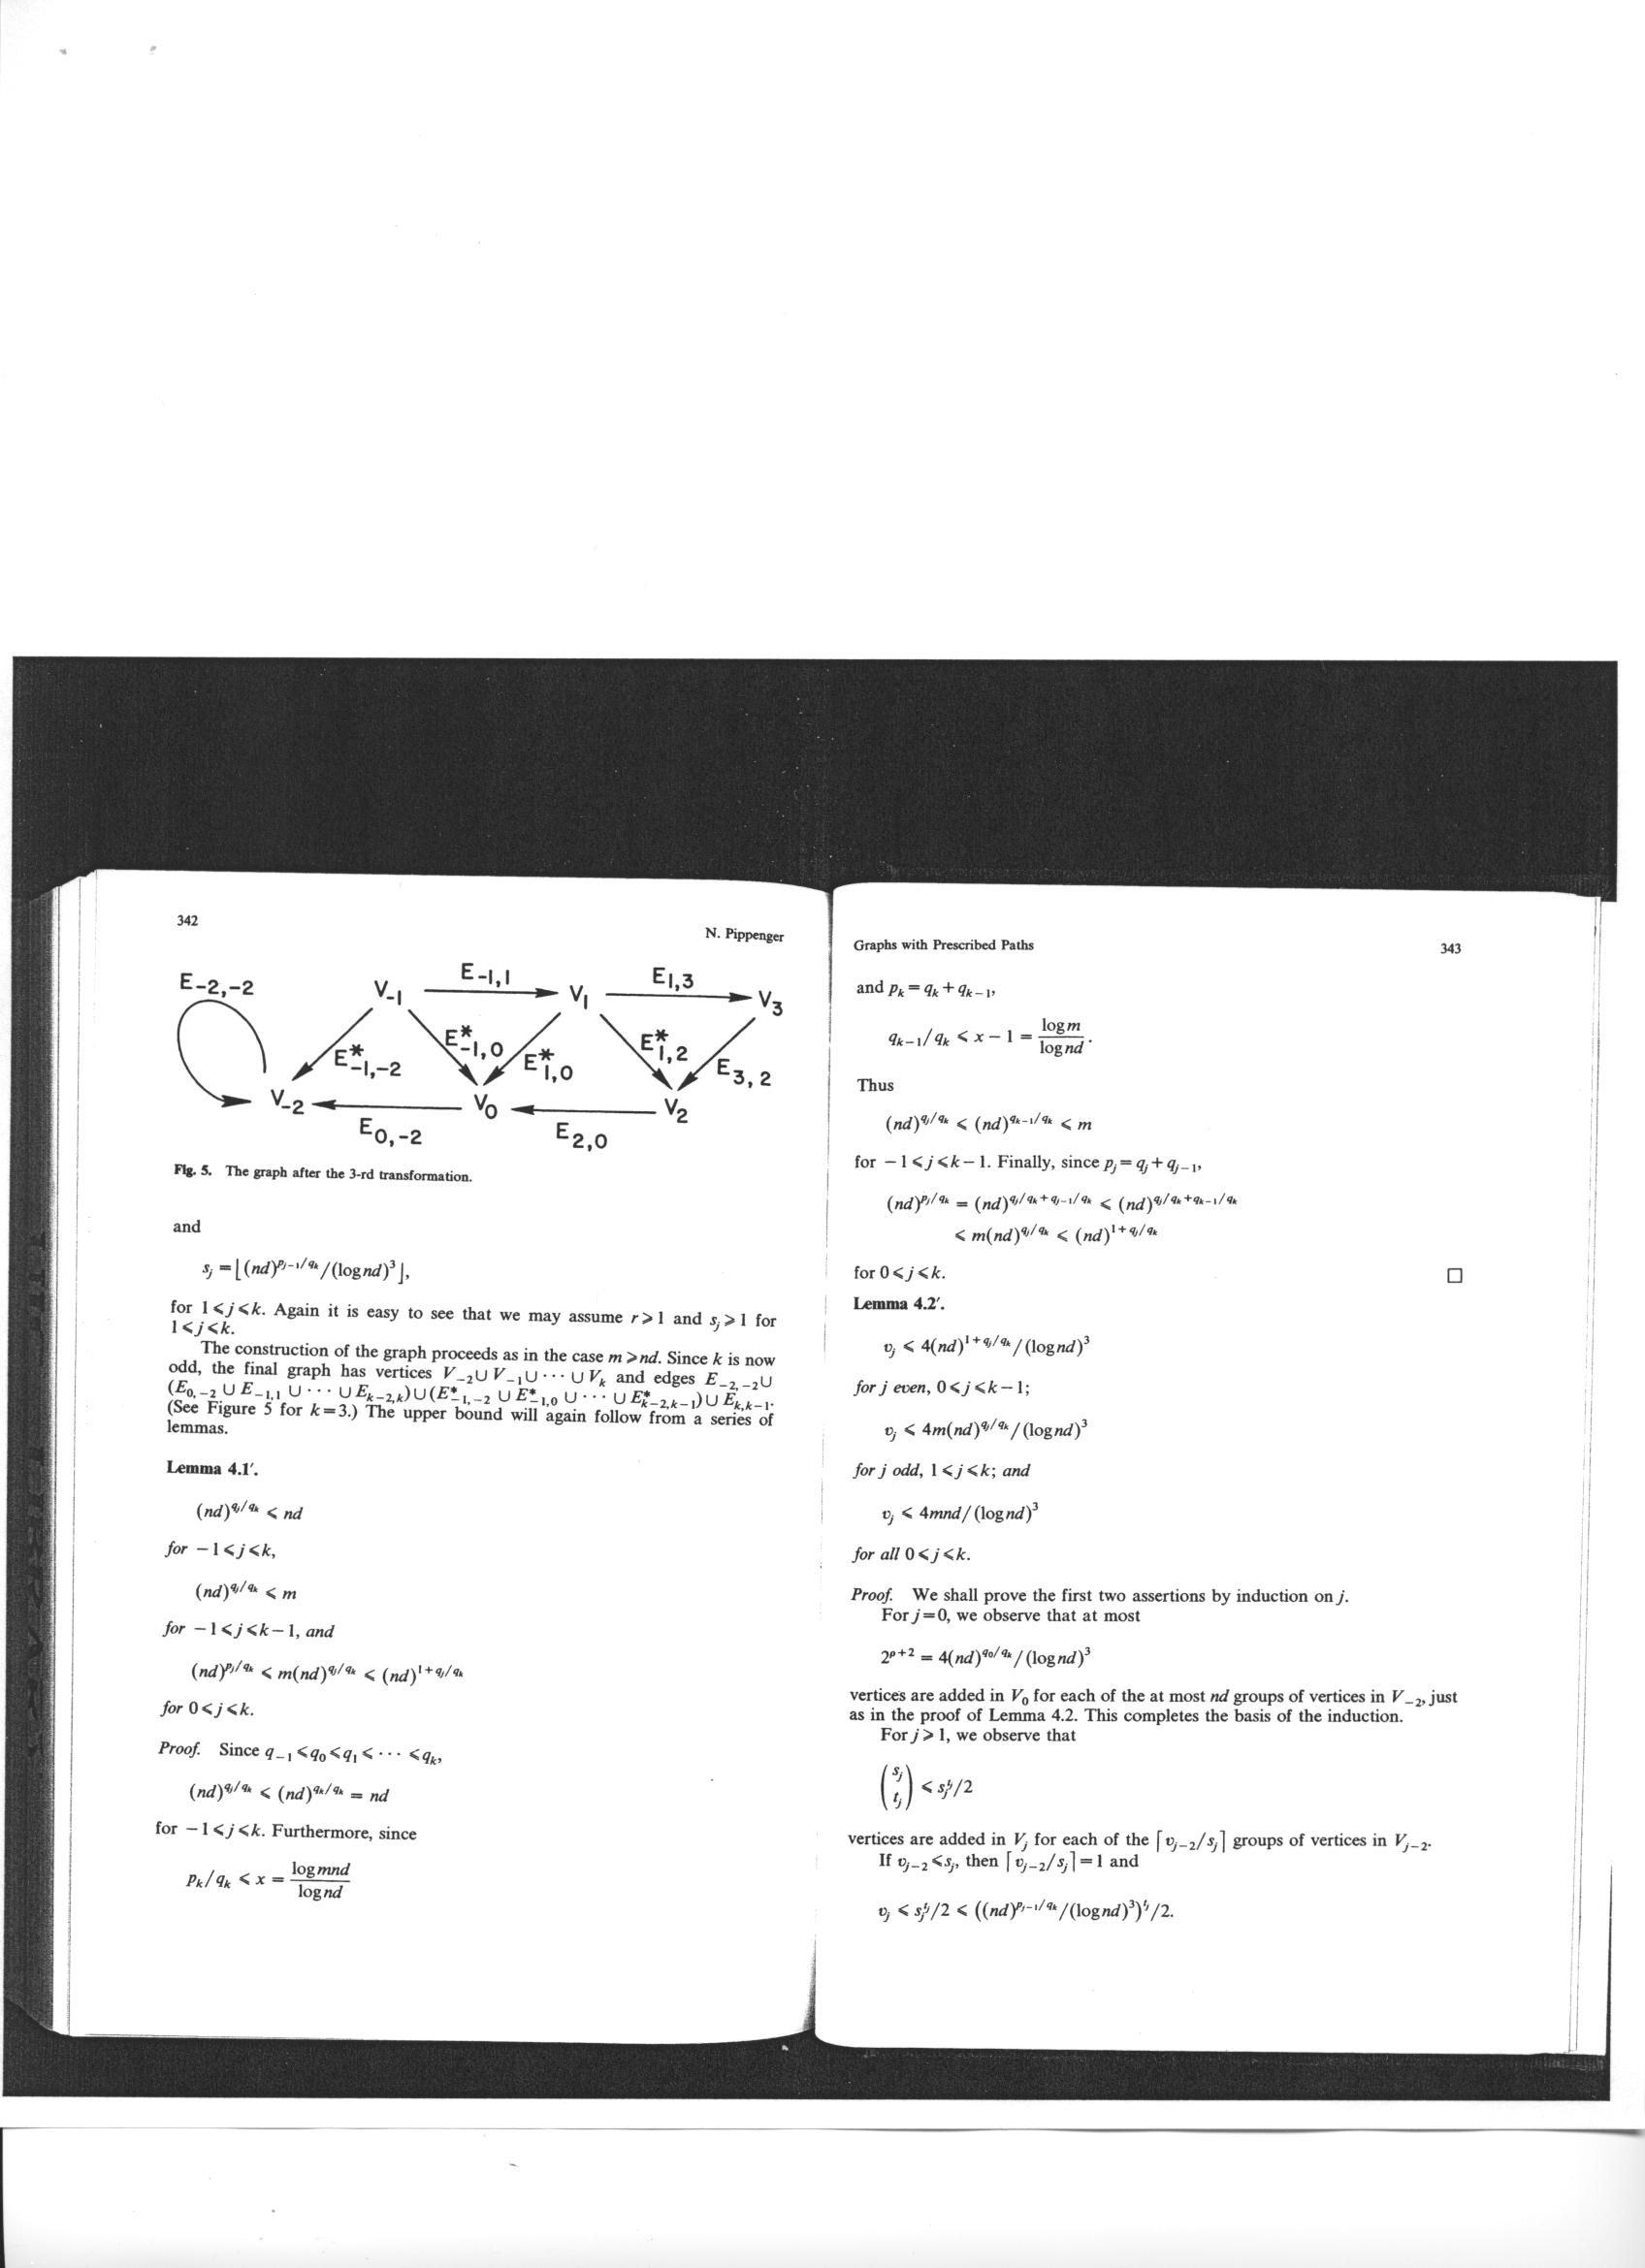 342
N. Pippenger
E-2,-2
V-1
E-1,1
V1
E1,3
V3
E*-1,-2
E*-1,0
E*1,0
E*1,2
E3,2
V-2
V0
V2
E0,-2
E2,0
Fig. 5. The graph after the 3-rd transformation.
and
s_j = ⌊(nd)^{p_{j-1}/q_k}/(log nd)^3⌋,
for 1⩽j⩽k. Again it is easy to see that we may assume r⩾1 and s_j⩾1 for
1⩽j⩽k.
The construction of the graph proceeds as in the case m⩾nd. Since k is now
odd, the final graph has vertices V_{-2}∪V_{-1}∪···∪V_k and edges E_{-2,-2}∪
(E_{0,-2}∪E_{-1,1}∪···∪E_{k-2,k})∪(E*_{-1,-2}∪E*_{-1,0}∪···∪E*_{k-2,k-1})∪E_{k,k-1}.
(See Figure 5 for k=3.) The upper bound will again follow from a series of
lemmas.
Lemma 4.1′.
(nd)^{q_j/q_k} ⩽ nd
for −1⩽j⩽k,
(nd)^{q_j/q_k} ⩽ m
for −1⩽j⩽k−1, and
(nd)^{p_j/q_k} ⩽ m(nd)^{q_j/q_k} ⩽ (nd)^{1+q_j/q_k}
for 0⩽j⩽k.
Proof. Since q_{-1}⩽q_0⩽q_1⩽···⩽q_k,
(nd)^{q_j/q_k} ⩽ (nd)^{q_k/q_k} = nd
for −1⩽j⩽k. Furthermore, since
p_k/q_k ⩽ x = log mnd / log nd
Graphs with Prescribed Paths
343
and p_k = q_k + q_{k-1},
q_{k-1}/q_k ⩽ x − 1 = log m / log nd.
Thus
(nd)^{q_j/q_k} ⩽ (nd)^{q_{k-1}/q_k} ⩽ m
for −1⩽j⩽k−1. Finally, since p_j = q_j + q_{j-1},
(nd)^{p_j/q_k} = (nd)^{q_j/q_k+q_{j-1}/q_k} ⩽ (nd)^{q_j/q_k+q_{k-1}/q_k}
⩽ m(nd)^{q_j/q_k} ⩽ (nd)^{1+q_j/q_k}
for 0⩽j⩽k. □
Lemma 4.2′.
v_j ⩽ 4(nd)^{1+q_j/q_k}/(log nd)^3
for j even, 0⩽j⩽k−1;
v_j ⩽ 4m(nd)^{q_j/q_k}/(log nd)^3
for j odd, 1⩽j⩽k; and
v_j ⩽ 4mnd/(log nd)^3
for all 0⩽j⩽k.
Proof. We shall prove the first two assertions by induction on j.
For j=0, we observe that at most
2^{ρ+2} = 4(nd)^{q_0/q_k}/(log nd)^3
vertices are added in V_0 for each of the at most nd groups of vertices in V_{-2}, just
as in the proof of Lemma 4.2. This completes the basis of the induction.
For j⩾1, we observe that
(s_j t_j) ⩽ s_j^{t_j}/2
vertices are added in V_j for each of the ⌈v_{j-2}/s_j⌉ groups of vertices in V_{j-2}.
If v_{j-2}⩽s_j, then ⌈v_{j-2}/s_j⌉=1 and
v_j ⩽ s_j^{t_j}/2 ⩽ ((nd)^{p_{j-1}/q_k}/(log nd)^3)^{t_j}/2.